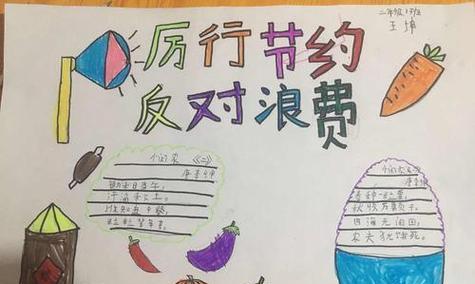 二年级1班
王
厉行节约
反对浪费
悯农 《二》
唐 李绅
锄禾日当午,
汗滴禾下土。
谁知盘中餐,
粒粒皆辛苦。
悯农
唐 李绅
春种一粒粟,
秋收万颗子。
四海无闲田,
农夫犹饿死。